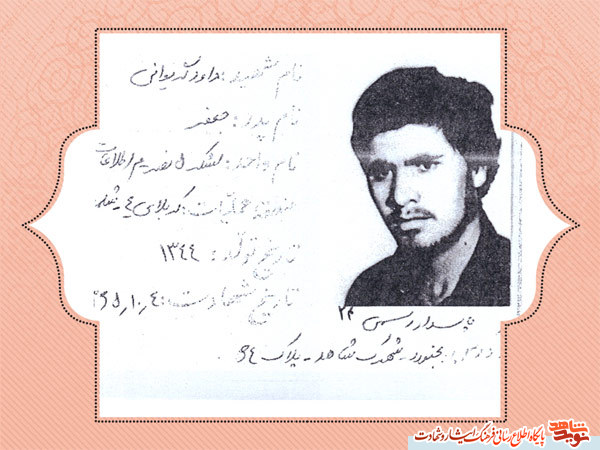 نام شهید: داود گریوانی
نام پدر: جعفر
نام واحد: لشکر ۵ نصر اطلاعات
عملیات: کربلای ۴ - شلمچه
تاریخ تولد: ۱۳۴۴
تاریخ شهادت: ۶۵،۱۰،۴
۲۴
پاسدار رسمی
بجنورد - شهرک شاهد - پلاک ۶۴
نوید شاهد
پایگاه اطلاع رسانی فرهنگ ایثار و شهادت